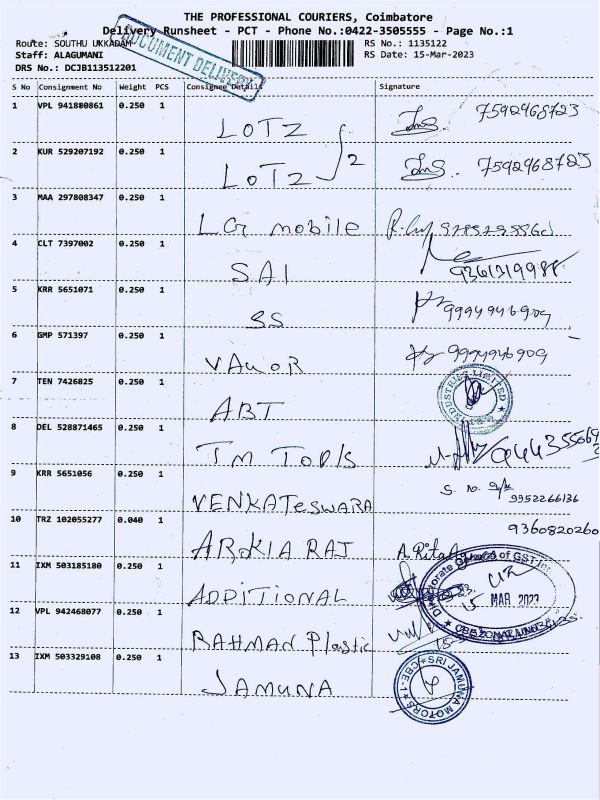 THE PROFESSIONAL COURIERS, Coimbatore
Delivery Runsheet - PCT - Phone No.:0422-3505555 - Page No.:1
Route: SOUTHU UKKADAM
RS No.: 1135122
Staff: ALAGUMANI
RS Date: 15-Mar-2023
DRS No.: DCJB113512201
DOCUMENT DELIVERY
S No Consignment No Weight PCS Consignee Details Signature
1 VPL 941880861 0.250 1 LOTZ 7592968723
2 KUR 529207192 0.250 1 LOTZ 2 7592968723
3 MAA 297808347 0.250 1 LG mobile
4 CLT 7397002 0.250 1 SAI
5 KRR 5651071 0.250 1 SS 9994946909
6 GMP 571397 0.250 1 9994946909
7 TEN 7426825 0.250 1 ABT
8 DEL 528871465 0.250 1 TM
9 KRR 5651056 0.250 1 VENKATESWARA 9952266136
10 TRZ 102055277 0.040 1 AROKIA RAJ A. Rita 9360820260
11 IXM 503185180 0.250 1 ADDITIONAL
15 MAR 2023
12 VPL 942468077 0.250 1 RAHMAN Plastic
13 IXM 503329108 0.250 1 JAMUNA
SRI JAMUNA MOTORS CBE-1